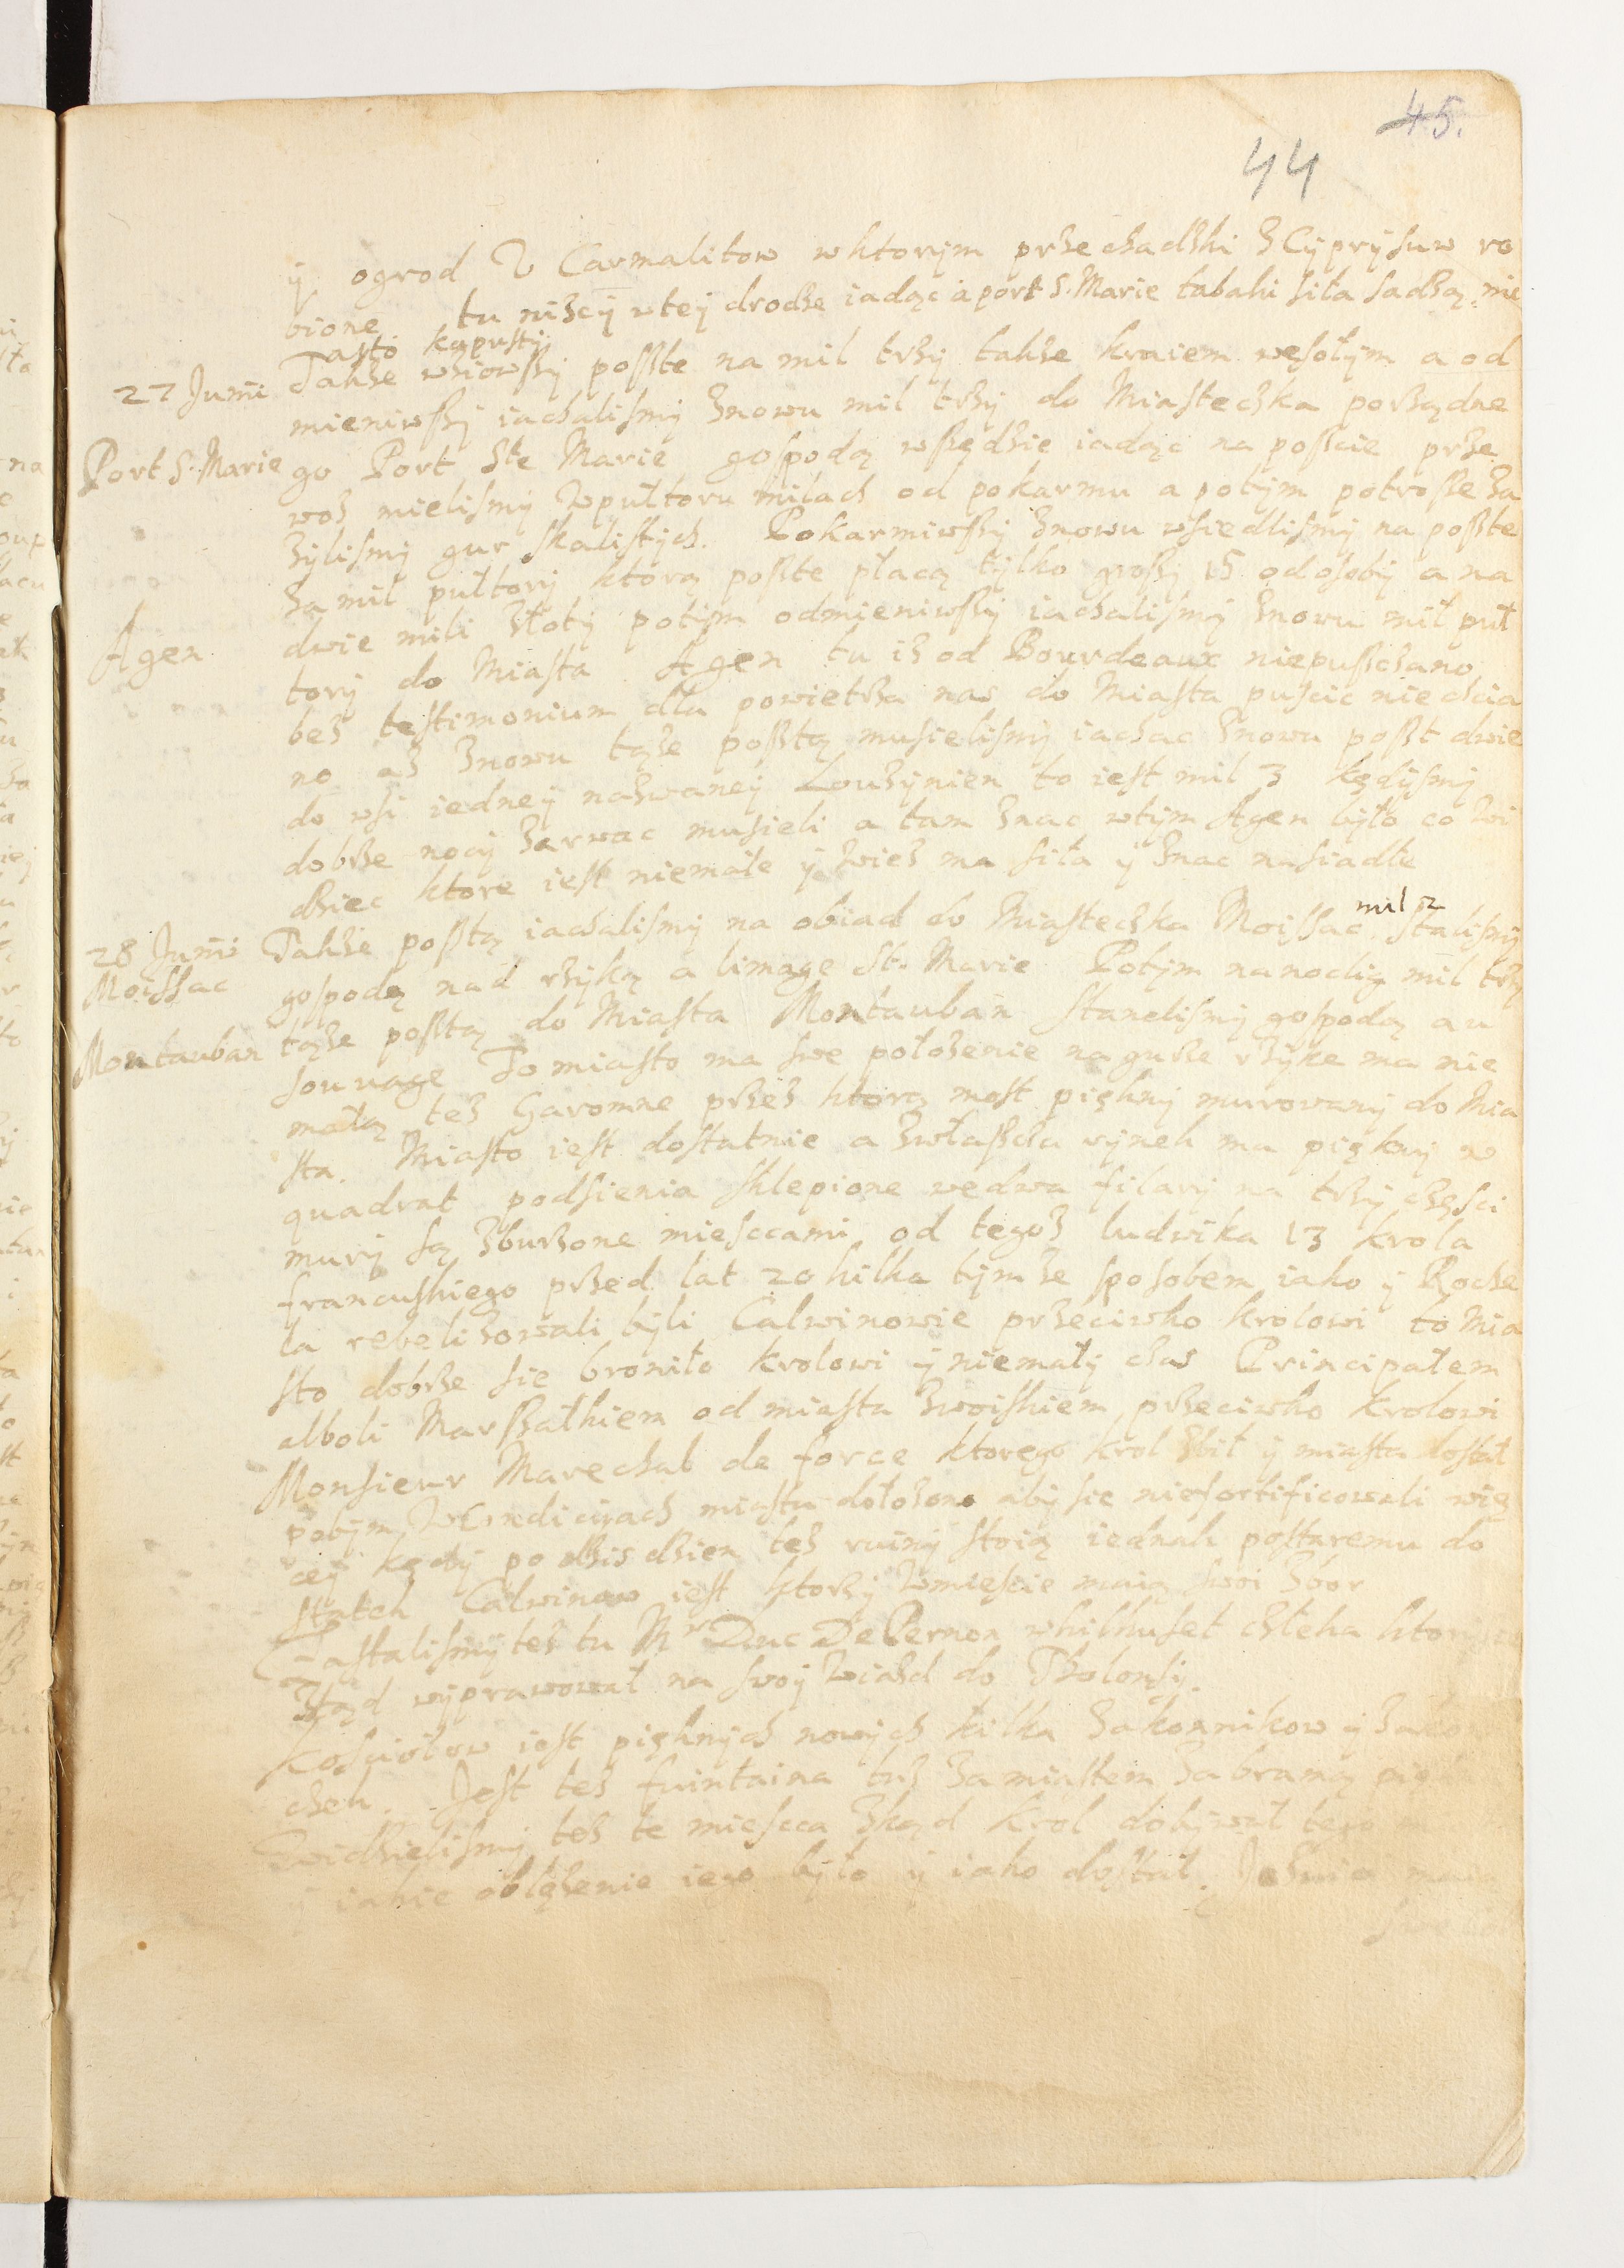 45.
44
ÿ ogrod U Carmalitow w ktorÿm przechadzki z Cÿprÿsuw ro
bione. tu nizeÿ w teÿ drodze iadąc a port S. Marie tabaki siła sadzą, mie
asto kapustÿ
27 Junii Takze wziowszÿ poszte na mil trzÿ takze kraiem wesołÿm a od
mieniwszÿ iachalismÿ znowu mil trzÿ do Miasteczka porządne
Port S. Marie go Port Ste Marie gospodą wszędzie iadąc na poscie prze
woz mielismÿ w pułtoru milach od pokarmu a potÿm potrosze za
zÿlismÿ gur skalistÿch. Pokarmiwszÿ znowu wsiedlismÿ na poszte
za mil pułtorÿ ktorą poszte płacą tÿlko groszÿ 15 od osobÿ a na
dwie mili złotÿ potÿm odmieniwszÿ iachalismÿ znowu mil puł
Agen torÿ do Miasta Agen tu iz od Bourdeaux niepuszczano
bez testimonium dla powietrza nas do Miasta puscic niechcia
no az znowu tąze posztą musielismÿ iachac znowu poszt dwie
do wsi iedneÿ nazwaneÿ Louzÿnien to iest mil 3 kędÿsmÿ
dobrze nocÿ zarwac musieli a tam znac w tÿm Agen bÿło co wi
dziec ktore iest niemałe ÿ wiez ma siła ÿ znac nasiadłe
28 Junii Takze posztą iachalismÿ na obiad do Miasteczka Moissac mil 2. stalismÿ
Moissac gospodą nad rzÿką a limage St. Marie Potÿm na noclig mil trzÿ
Montauban tąze posztą do Miasta Montauban stanelismÿ gospodą au
souuage To miasto ma swe połozenie na gurze rzÿke ma nie
małą tez Garomne przez ktorą most pięknÿ murowanÿ do Mia
sta. Miasto iest dostatnie a zwłaszcza rÿnek ma pięknÿ w
quadrat podsienia sklepione we dwa filarÿ na trzÿ częsci
murÿ są zburzone miesccami od tegoz ludwika 13 krola
francuskiego przed lat 20 kilka tÿmze sposobem iako ÿ Roche
la rebelizowali bÿli Calwinowie przeciwko krolowi to Mia
sto dobrze sie broniło krolowi ÿ niemałÿ czas Principałem
alboli Marszałkiem od miasta zwoiskiem przeciwko krolowi
Monsieur Marechal de force ktorego krol zbił ÿ miasta dostał
potÿm w Condiciach miastu dołozono abÿ sie niefortificowali wię
ceÿ kędÿ po dzis dzien tez ruinÿ stoią iednak postaremu do
statek Calwinow iest ktorzÿ w miescie maią swoi zbor
Zastalismÿ tez tu Mr Duc De Pernon w kilkuset człeka ktorÿ sie
ztąd wÿprawował na swoÿ wiazd do Tholousÿ.
Kosciołow iest pięknÿch nowÿch kilka zakonnikow ÿ
czek. Jest tez fuintaina tuz za miastem za bramą
Widzielismÿ tez te miesca zkąd krol dobÿwał tego
ÿ iakie oblęzenie iego bÿło ÿ iako dostał.